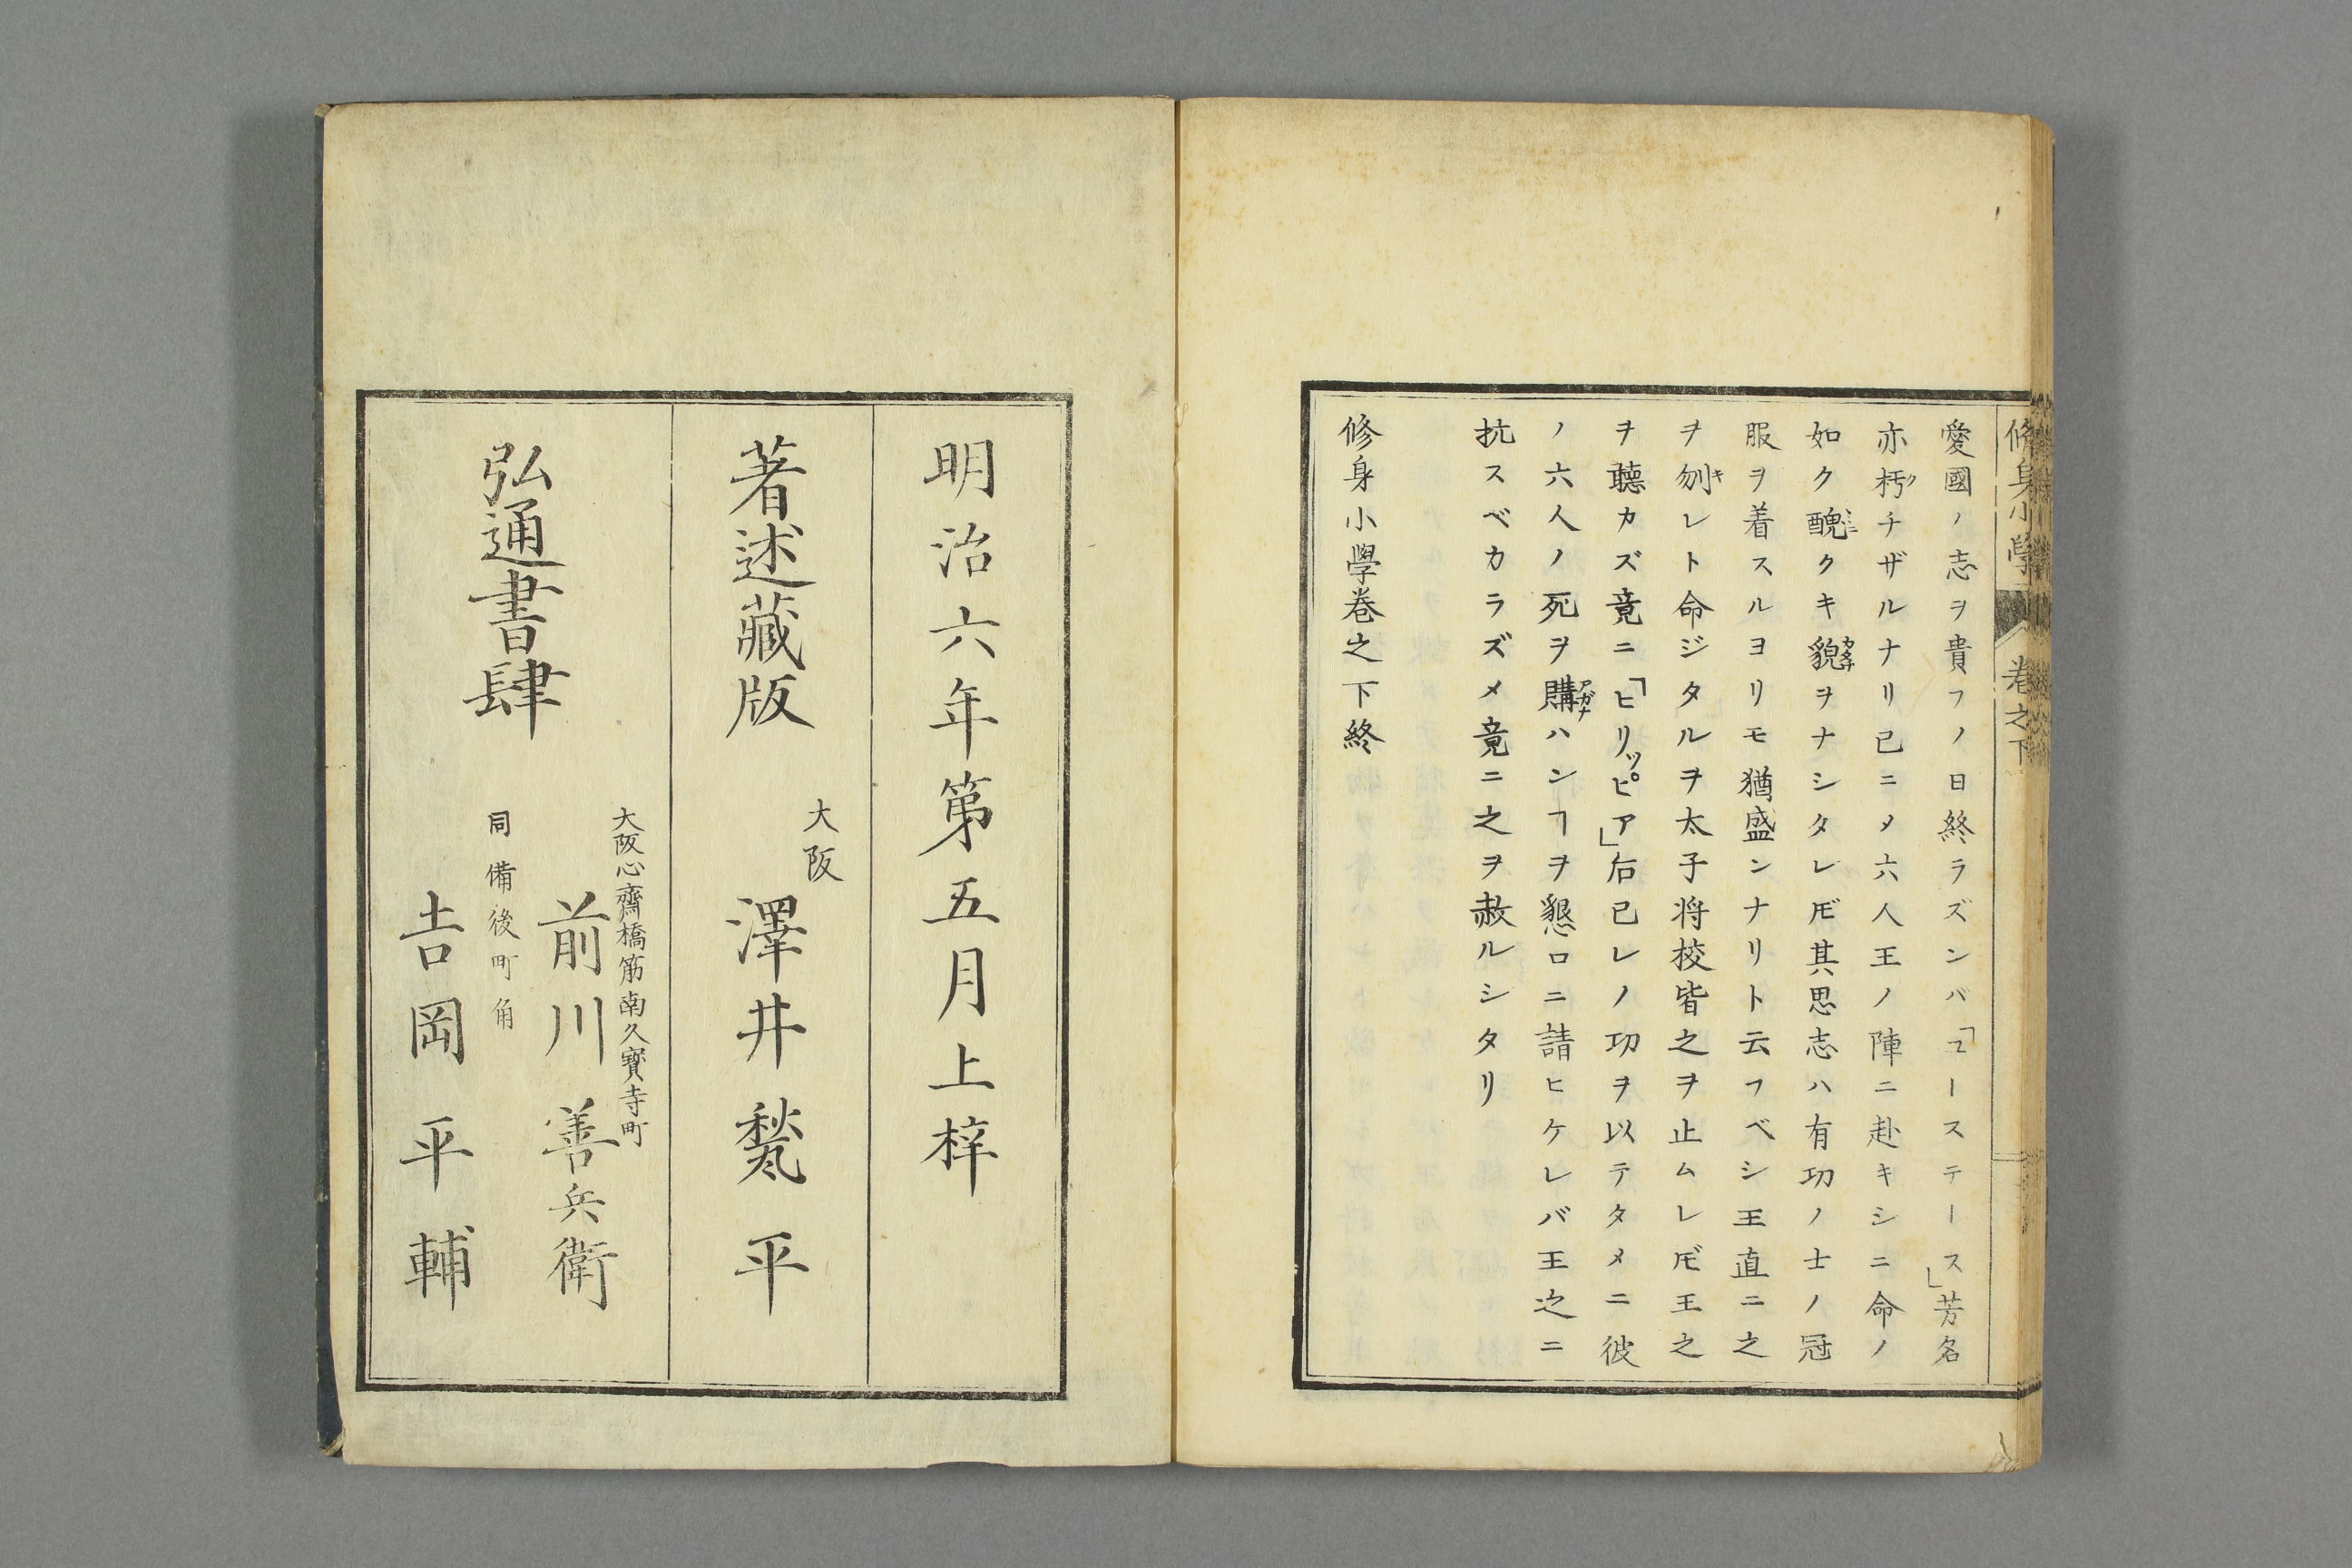 修身小學
卷之下
愛國ノ志ヲ貴フノ日終ラズンバ「ユーステース」芳名
亦杇チザルナリ已ニ〆六人王ノ陣ニ赴キシニ命ノ
ク
如ク醜クキ貌ヲナシタレ𪜈其思志ハ有功ノ士ノ冠
ミニ
カタチ
服ヲ着スルヨリモ猶盛ンナリト云フベシ王直ニ之
ヲ刎レト命ジタルヲ太子将校皆之ヲ止ムレ𪜈王之
キ
ヲ聽カズ竟ニ「ヒリッピア」后已レノ功ヲ以テタメニ彼
ノ六人ノ死ヲ購ハンヿヲ懇ロニ請ヒケレバ王之ニ
アガナ
抗スベカラズメ竟ニ之ヲ赦ルシタリ
修身小學卷之下終
明治六年第五月上梓
著述藏版
大阪
澤井 平
弘通書肆
大阪心齋橋筋南久寳寺町
前川善兵衛
同備後町角
吉岡平輔